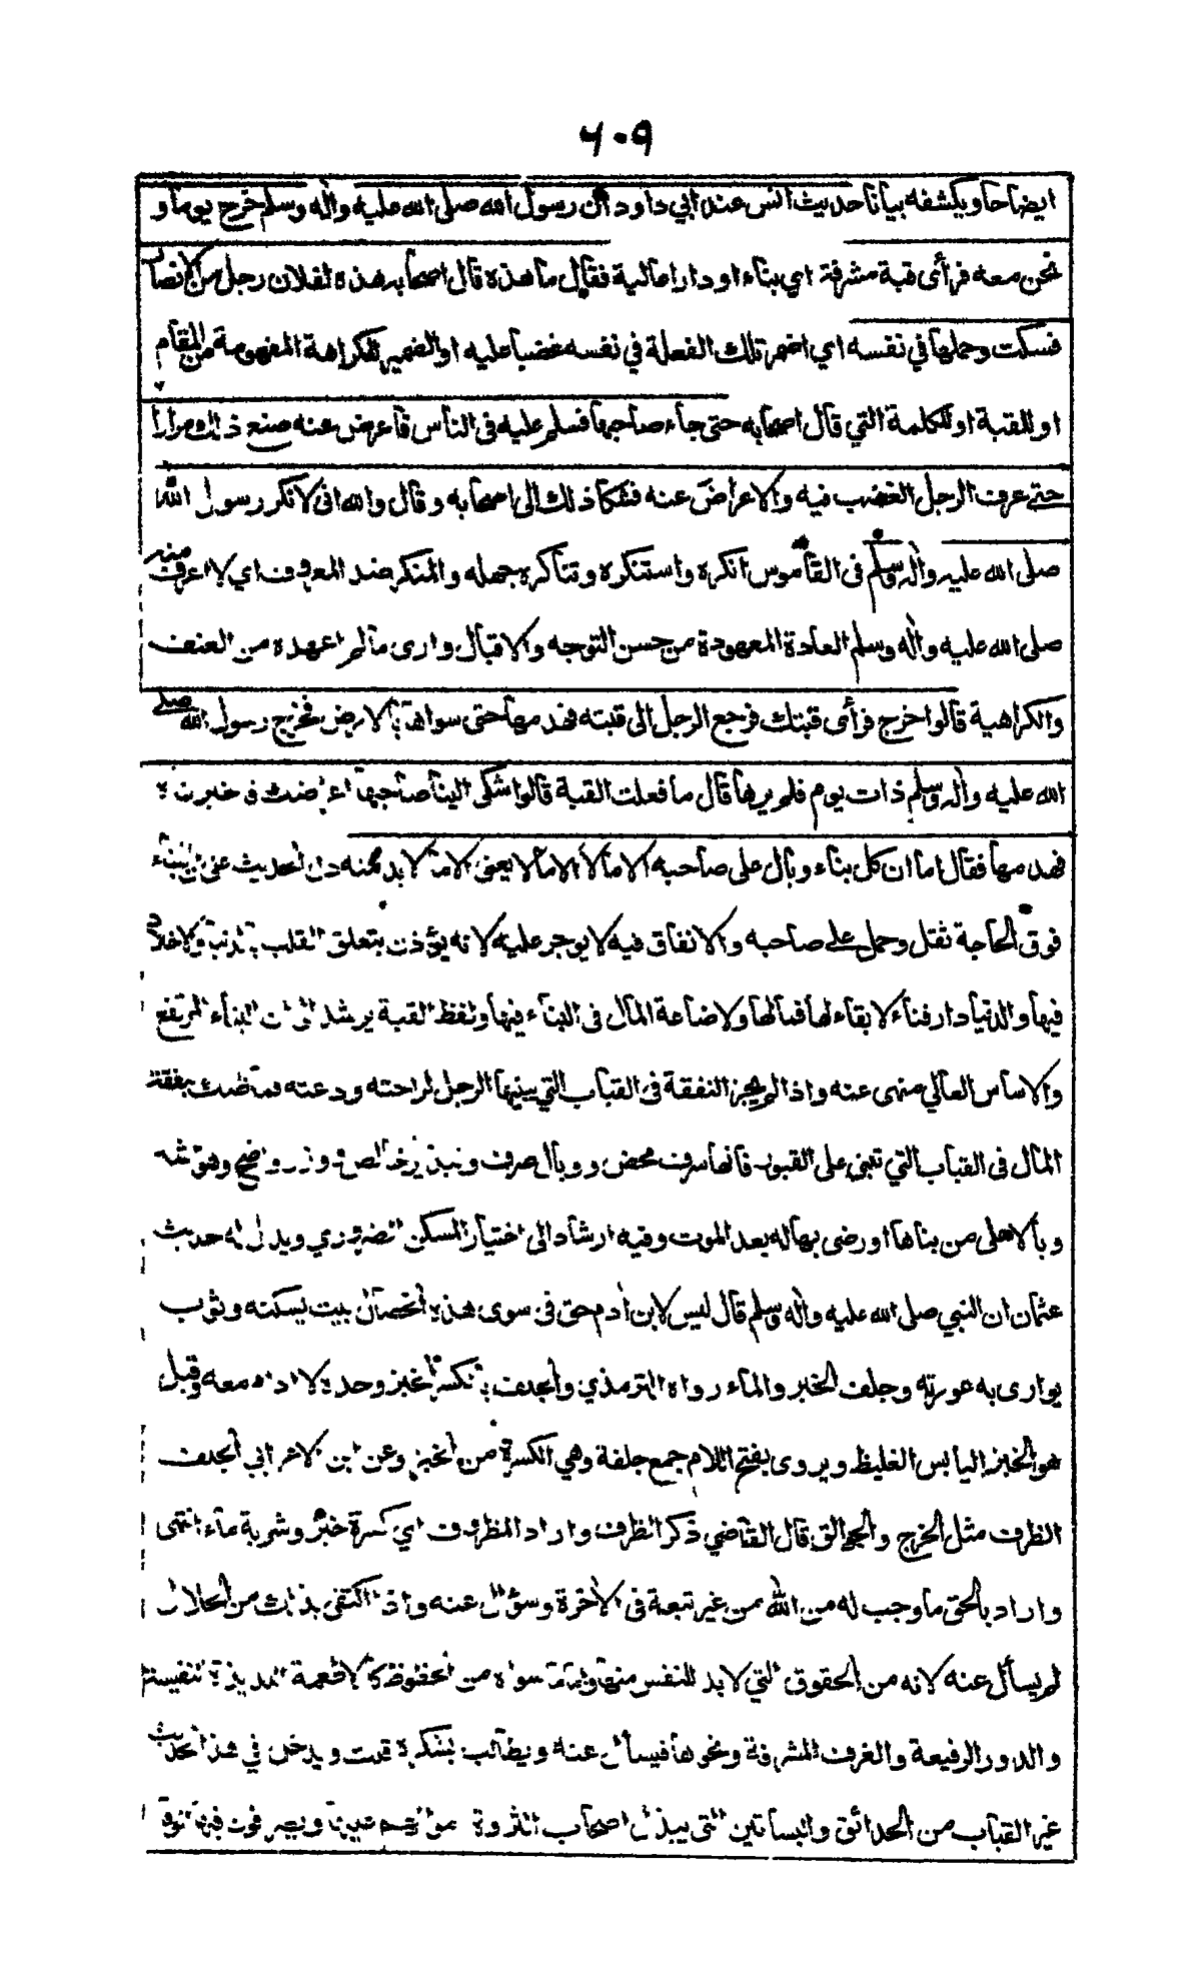 ٦٠٩
ايضاحا ويكشفه بيانا حديث انس عند ابي داود ان رسول الله صلى الله عليه واله وسلم خرج يوما و
نحن معه فرأى قبة مشرفة اي بناء او دارا عالية فقال ما هذه قال اصحابه هذه لفلان رجل من الانصار
فسكت وحملها في نفسه اي اضمر تلك الفعلة في نفسه غضبا عليه او الضمير للكراهة المفهومة من المقام
او للقبة او للكلمة التي قال اصحابه حتى جاء صاحبها فسلم عليه فى الناس فاعرض عنه صنع ذلك مرارا
حتى عرف الرجل الغضب فيه والاعراض عنه فشكا ذلك الى اصحابه وقال والله انى لانكر رسول الله
صلى الله عليه واله وسلم فى القاموس انكره واستنكره وتناكره جهله والمنكر ضد المعروف اي لا اعرف منه
صلى الله عليه واله وسلم العادة المعهودة من حسن التوجه والاقبال وارى مالم اعهده من العنف
والكراهية قالوا خرج فرأى قبتك فرجع الرجل الى قبته فهدمها حتى سواها بالارض فخرج رسول الله صلى
الله عليه واله وسلم ذات يوم فلم يرها قال ما فعلت القبة قالوا شكى الينا صاحبها اعراضك فاخبرناه
فهدمها فقال اما ان كل بناء وبال على صاحبه الا مالا الا مالا يعنى الا ما لا بد منه دل الحديث على ان البناء
فوق الحاجة ثقل وحمل على صاحبه والانفاق فيه لا يوجر عليه لانه يؤذن بتعلق القلب بالدنيا والاخلاد
فيها والدنيا دار فناء لا بقاء لها فمالها ولاضاعة المال فى البناء فيها ولفظ القبة يرشد الى ان البناء المرتفع
والاساس العالي منهى عنه واذا لم يجز النفقة فى القباب التي يبنيها الرجل لراحته ودعته فما ظنك بنفقة
المال فى القباب التي تبنى على القبور فانها سرف محض ووبال صرف وتبذير خالص ووزر واضح وهو اشد
وبالا على من بناها او رضى بها له بعد الموت وفيه ارشاد الى اختيار المسكن الضروري ويدل له حديث
عثمان ان النبي صلى الله عليه واله وسلم قال ليس لابن أدم حق فى سوى هذه الخصال بيت يسكنه وثوب
يوارى به عورته وجلف الخبز والماء رواه الترمذي والجلف بالكسر الخبز وحده لا ادام معه وقيل
هو الخبز اليابس الغليظ ويروى بفتح اللام جمع جلفة وهي الكسرة من الخبز وعن ابن الاعرابي الجلف
الظرف مثل الخرج والجوالق قال القاضي ذكر الظرف واراد المظروف اي كسرة خبز وشربة ماء انتهى
واراد بالحق ما وجب له من الله من غير تبعة فى الأخرة وسؤال عنه واذا اكتفى بذلك من الحلال
لم يسأل عنه لانه من الحقوق التي لا بد للنفس منها واما ما سواه من الحظوظ كالاطعمة اللذيذة النفيسة
والدور الرفيعة والغرف المشرفة ونحوها فيسأل عنه ويطالب بشكره قلت ويدخل في هذا الحديث
غير القباب من الحدائق والبساتين التى يبذل اصحاب الثروة اموالهم عليها ويصرفون فيها